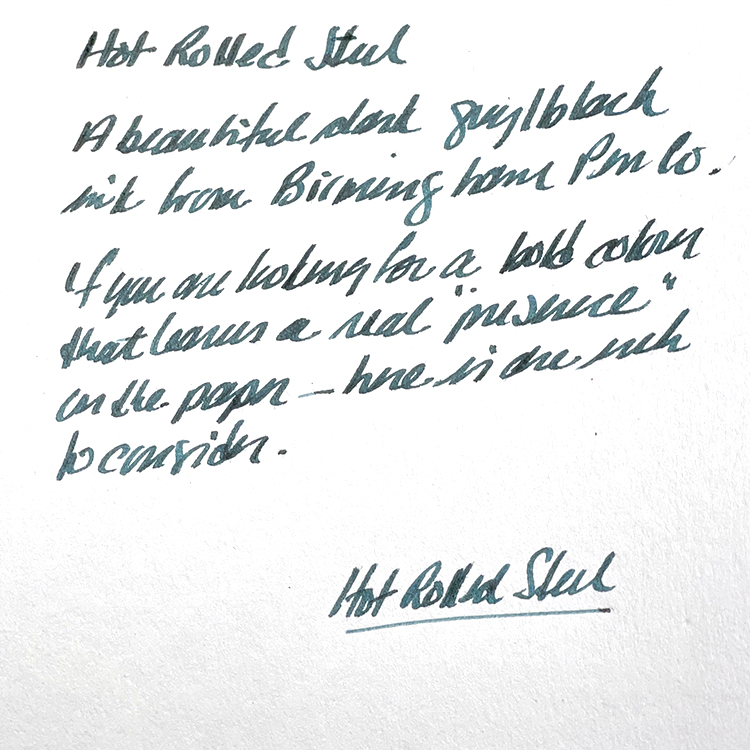 Hot Rolled Steel
A beautiful dark grey/black
ink from Birmingham Pen Co.
If you are looking for a bold colour
that leaves a real "presence"
on the paper – here is one such
to consider.
Hot Rolled Steel